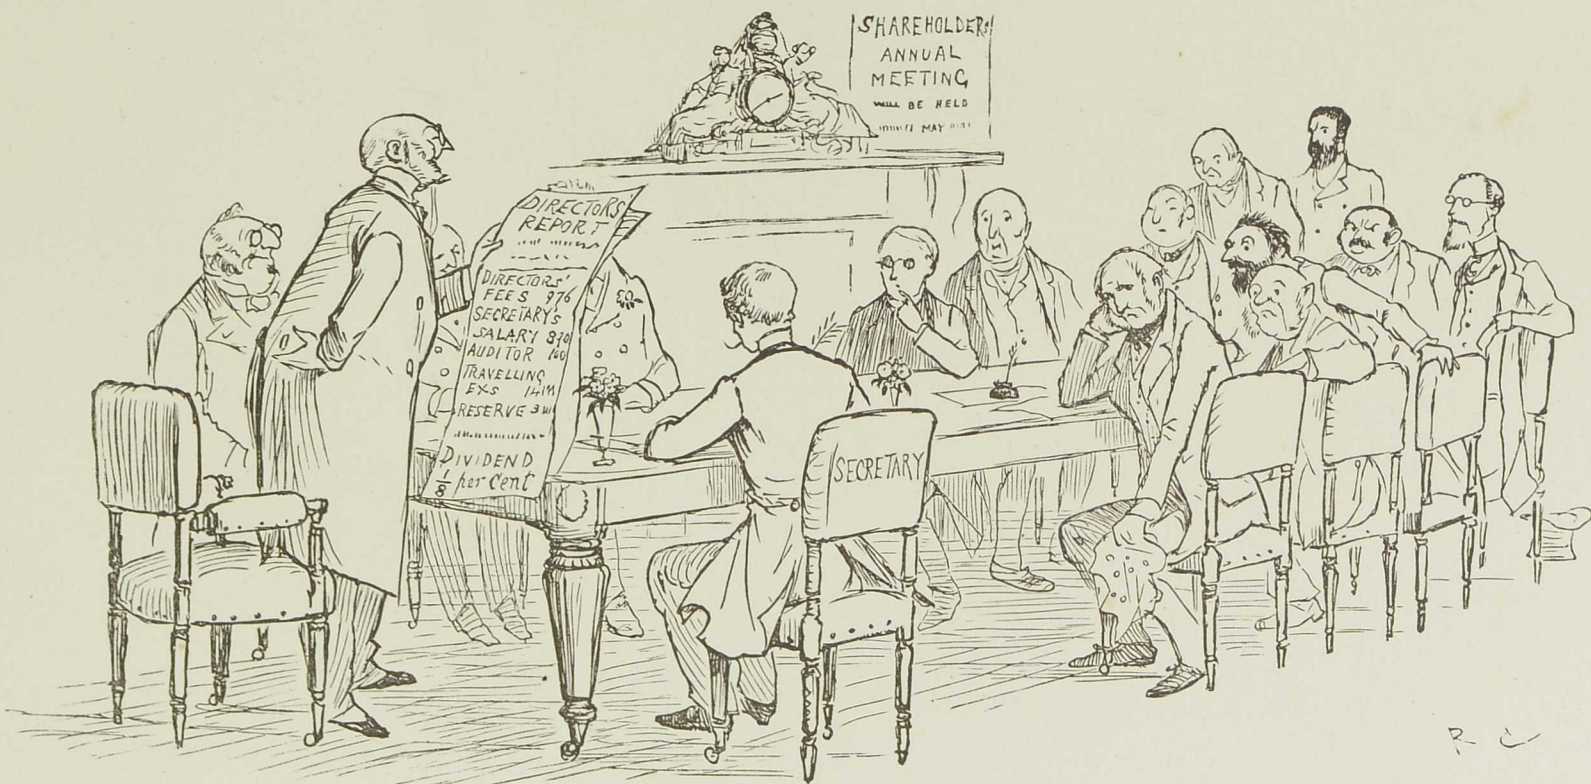 SHAREHOLDERS'
ANNUAL
MEETING
WILL BE HELD
MAY
DIRECTORS
REPORT
DIRECTORS'
FEES 976
SECRETARY'S
SALARY 830
AUDITOR 160
TRAVELLING
EXS
RESERVE
DIVIDEND
1/8 per cent
SECRETARY
R C